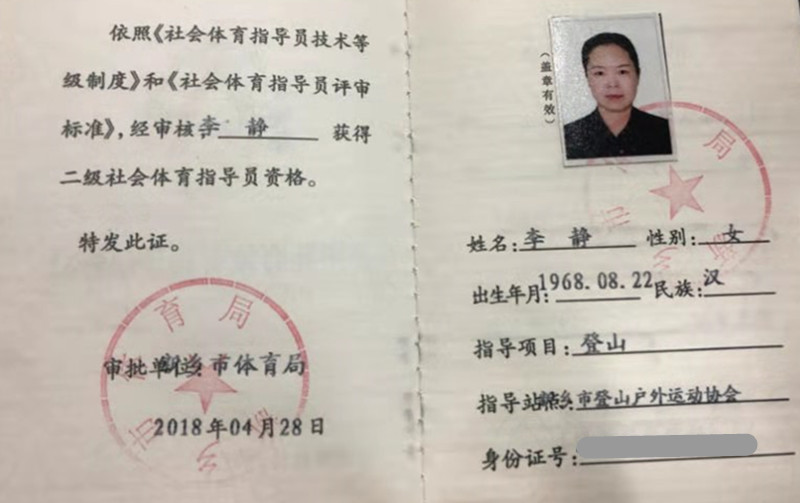 依照《社会体育指导员技术等
级制度》和《社会体育指导员评审
标准》，经审核：李 静 获得
二级社会体育指导员资格。
特发此证。
审批单位：新乡市体育局
2018年04月28日
（盖章有效）
姓名：李 静 性别：女
出生年月：1968.08.22 民族：汉
指导项目：登山
指导站点：新乡市登山户外运动协会
身份证号：